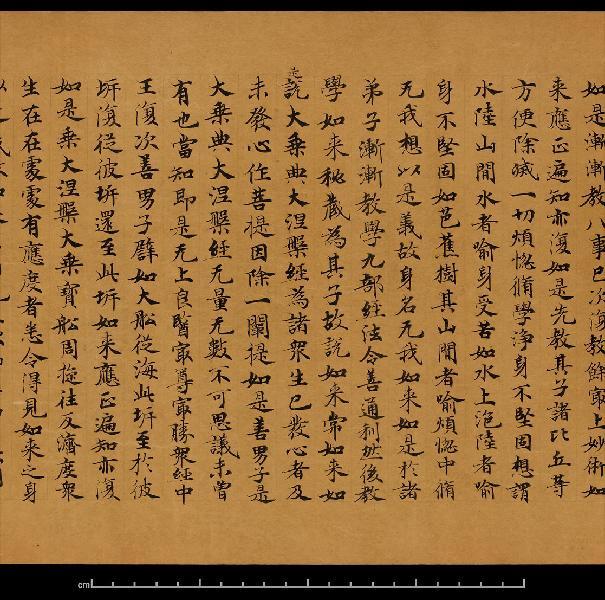 如是漸漸教八事已次復教餘冣上妙術如
來應正遍知亦復如是先教其子諸比丘等
方便除滅一切煩惚脩學淨身不堅固想謂
水陸山間水者喻身受苦如水上泡陸者喻
身不堅固如芭蕉樹其山間者喻煩惚中脩
无我想以是義故身名无我如來如是於諸
弟子漸漸教學九部經法令善通利然後教
學如來秘藏為其子故說如來常如來如
是說大乘典大涅槃經為諸衆生已發心者及
未發心作菩提因除一闡提如是善男子是
大乘典大涅槃經无量无數不可思議未曾
有也當知即是无上良醫冣尊冣勝衆經中
王復次善男子譬如大舩從海此岸至於彼
岸復從彼岸還至此岸如來應正遍知亦復
如是乘大涅槃大乘寶舩周旋往反濟度衆
生在在處處有應度者悉令得見如來之身